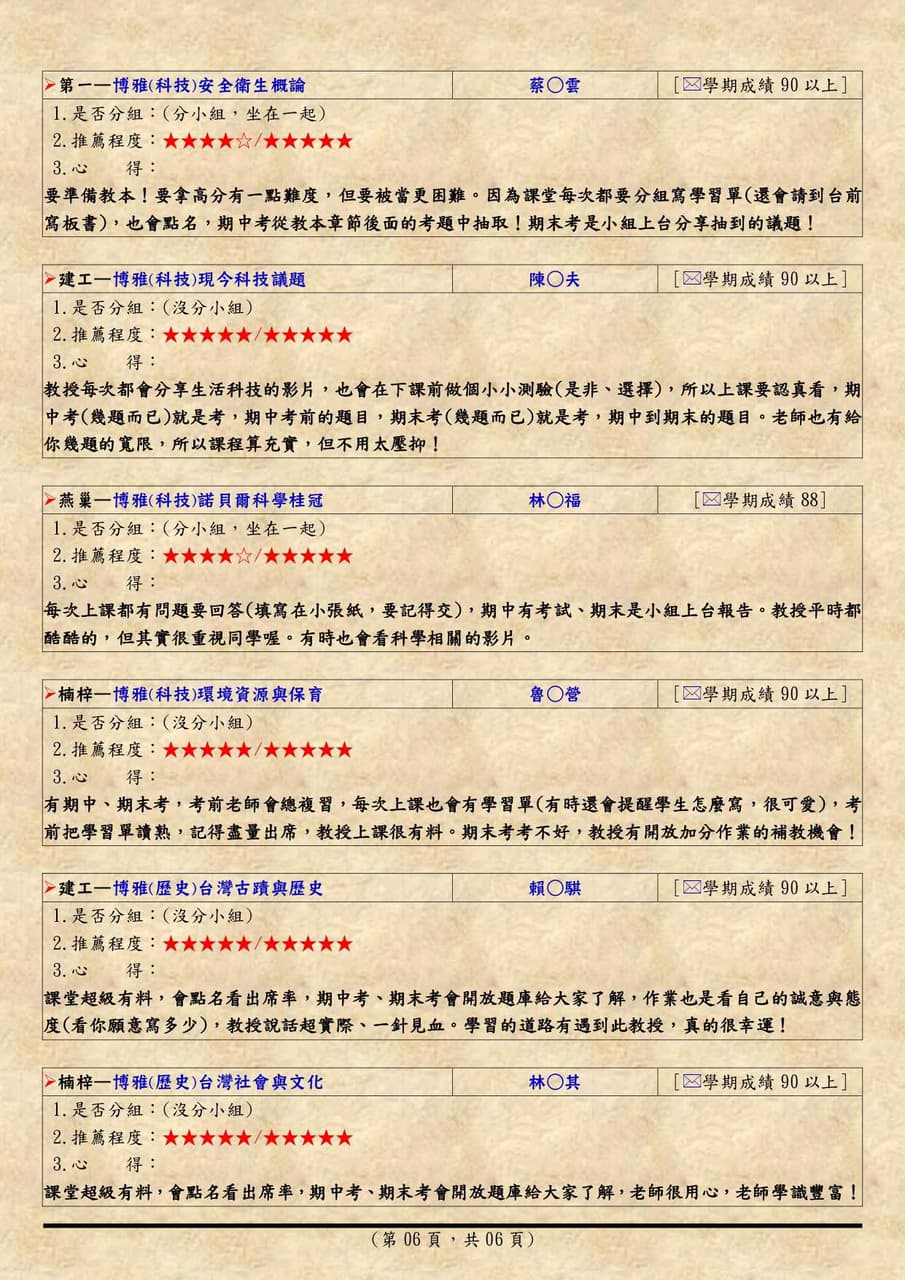 ➢第一—博雅(科技)安全衛生概論 蔡○雲 [✉學期成績 90 以上]
1.是否分組：(分小組，坐在一起)
2.推薦程度：★★★★☆/★★★★★
3.心　　得：
要準備教本！要拿高分有一點難度，但要被當更困難。因為課堂每次都要分組寫學習單(還會請到台前
寫板書)，也會點名，期中考從教本章節後面的考題中抽取！期末考是小組上台分享抽到的議題！
➢建工—博雅(科技)現今科技議題 陳○夫 [✉學期成績 90 以上]
1.是否分組：(沒分小組)
2.推薦程度：★★★★★/★★★★★
3.心　　得：
教授每次都會分享生活科技的影片，也會在下課前做個小小測驗(是非、選擇)，所以上課要認真看，期
中考(幾題而已)就是考，期中考前的題目，期末考(幾題而已)就是考，期中到期末的題目。老師也有給
你幾題的寬限，所以課程算充實，但不用太壓抑！
➢燕巢—博雅(科技)諾貝爾科學桂冠 林○福 [✉學期成績 88]
1.是否分組：(分小組，坐在一起)
2.推薦程度：★★★★☆/★★★★★
3.心　　得：
每次上課都有問題要回答(填寫在小張紙，要記得交)，期中有考試、期末是小組上台報告。教授平時都
酷酷的，但其實很重視同學喔。有時也會看科學相關的影片。
➢楠梓—博雅(科技)環境資源與保育 魯○營 [✉學期成績 90 以上]
1.是否分組：(沒分小組)
2.推薦程度：★★★★★/★★★★★
3.心　　得：
有期中、期末考，考前老師會總複習，每次上課也會有學習單(有時還會提醒學生怎麼寫，很可愛)，考
前把學習單讀熟，記得盡量出席，教授上課很有料。期末考考不好，教授有開放加分作業的補教機會！
➢建工—博雅(歷史)台灣古蹟與歷史 賴○騏 [✉學期成績 90 以上]
1.是否分組：(沒分小組)
2.推薦程度：★★★★★/★★★★★
3.心　　得：
課堂超級有料，會點名看出席率，期中考、期末考會開放題庫給大家了解，作業也是看自己的誠意與態
度(看你願意寫多少)，教授說話超實際、一針見血。學習的道路有遇到此教授，真的很幸運！
➢楠梓—博雅(歷史)台灣社會與文化 林○其 [✉學期成績 90 以上]
1.是否分組：(沒分小組)
2.推薦程度：★★★★★/★★★★★
3.心　　得：
課堂超級有料，會點名看出席率，期中考、期末考會開放題庫給大家了解，老師很用心，老師學識豐富！
(第 06 頁，共 06 頁)